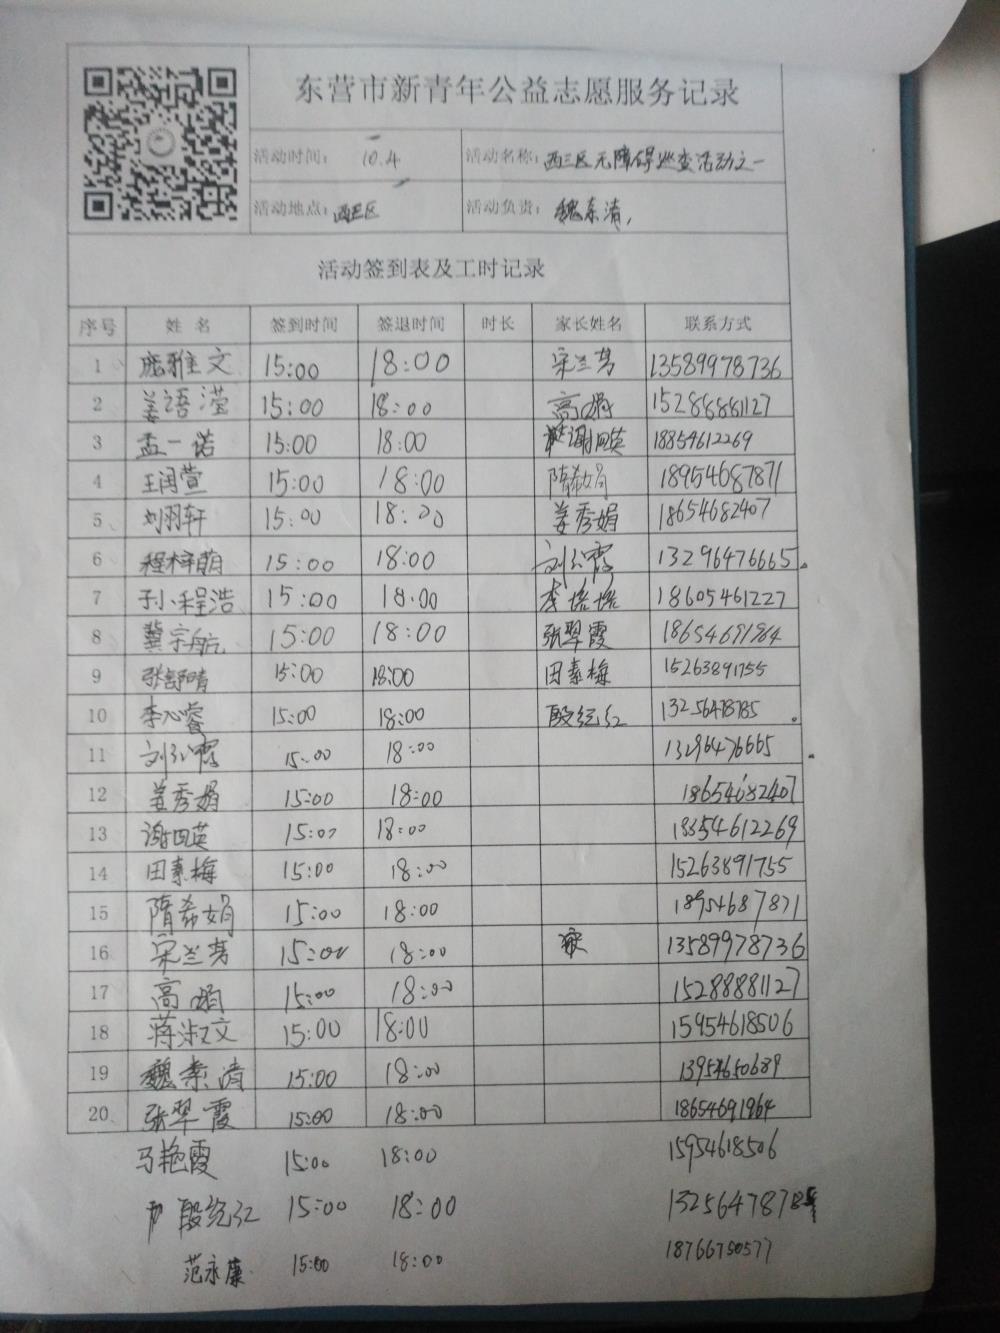 东营市新青年公益志愿服务记录
活动时间： 10.4 活动名称：西三区无障碍巡查活动之一
活动地点：西三区 活动负责：魏素清，
活动签到表及工时记录
序号 姓名 签到时间 签退时间 时长 家长姓名 联系方式
1 庞雅文 15:00 18:00 宋兰芳 13589978736
2 姜语滢 15:00 18:00 高娟 15288881127
3 孟一诺 15:00 18:00 谢田英 18854612269
4 王闰萱 15:00 18:00 隋希娟 18954687871
5 刘羽轩 15:00 18:00 姜秀娟 18654682407
6 程梓萌 15:00 18:00 13296476665
7 孙程浩 15:00 18:00 李培培 18605461227
8 冀宗航 15:00 18:00 张翠霞 18654691964
9 张舒晴 15:00 18:00 田素梅 15263891755
10 李心睿 15:00 18:00 段纪红 13256478785
11 15:00 18:00 13296476665
12 姜秀娟 15:00 18:00 18654682407
13 谢田英 15:00 18:00 18854612269
14 田素梅 15:00 18:00 15263891755
15 隋希娟 15:00 18:00 18954687871
16 宋兰芳 15:00 18:00 13589978736
17 高娟 15:00 18:00 15288881127
18 蒋淑文 15:00 18:00 15954618506
19 魏素清 15:00 18:00 13954650689
20 张翠霞 15:00 18:00 18654691964
马艳霞 15:00 18:00 15954618506
段纪红 15:00 18:00 13256478785
范永康 15:00 18:00 18766750577